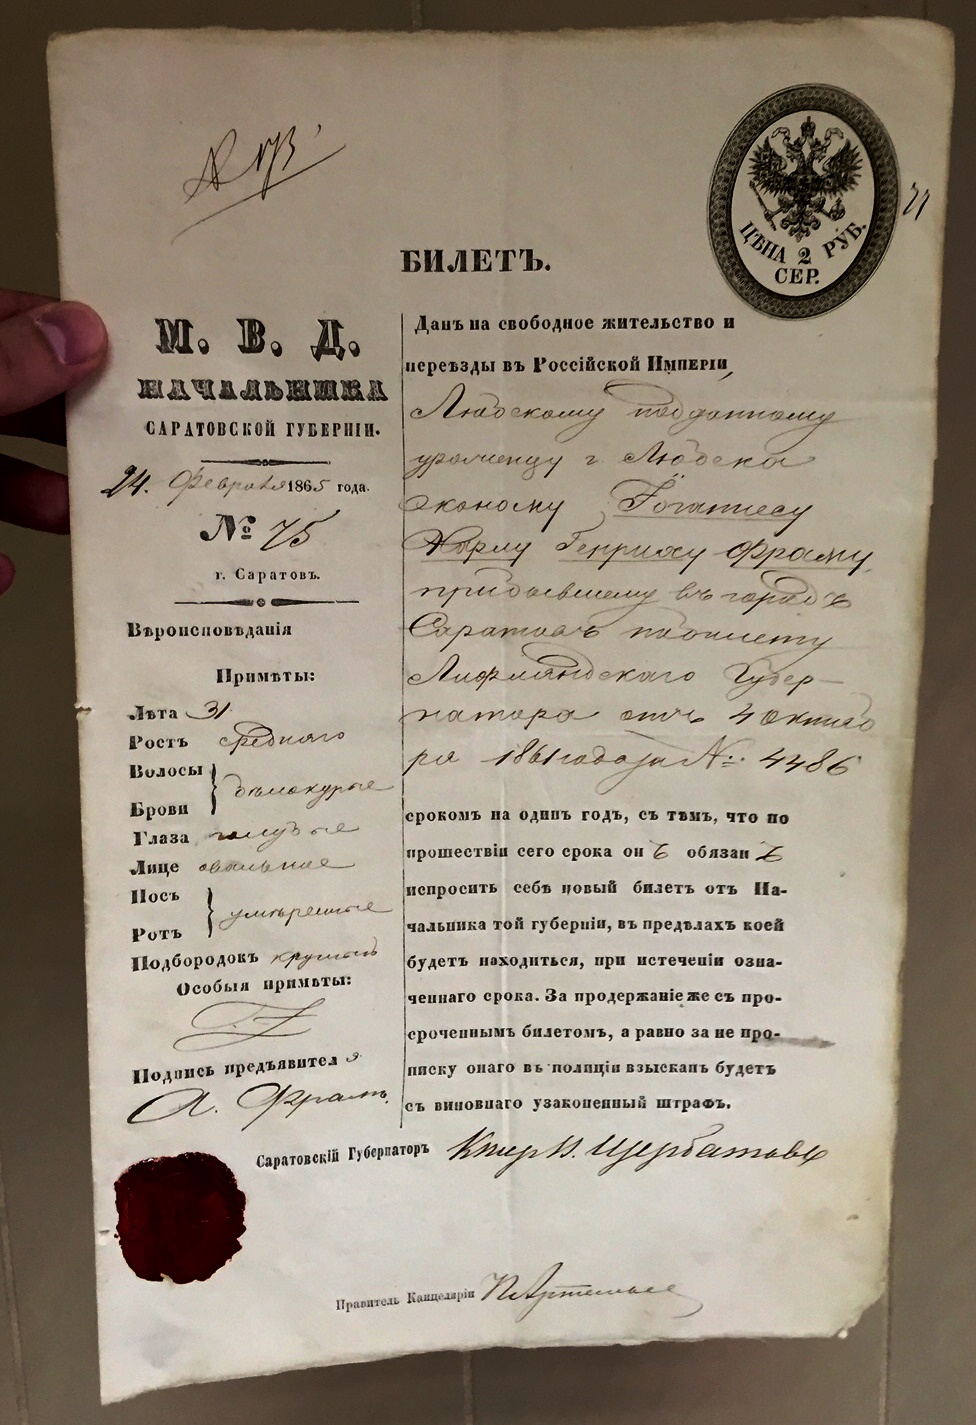 ЦѢНА 2 РУБ.
СЕР.
БИЛЕТЪ.
М. В. Д.
НАЧАЛЬНИКА
САРАТОВСКОЙ ГУБЕРНІИ.
24. Февраля 1865 года.
№ 75
г. Саратовъ.
Вѣроисповѣданія
Примѣты:
Лѣта 31
Ростъ средняго
Волосы
Брови
бѣлокурые
Глаза голубые
Лице овальное
Носъ
Ротъ
умѣренные
Подбородокъ круглый
Особыя примѣты:
Подпись предъявителя
А. Фрамъ.
Данъ на свободное жительство и
переѣзды въ Россійской Имперіи,
Любскому подданному
уроженцу г. Любска
эконому Іоганнесу
Карлу Генриху Фраму,
прибывшему въ городъ
Саратовъ по билету
Лифляндскаго Губер-
натора отъ 4 октяб
ря 1861 года за № 4486
срокомъ на одинъ годъ, съ тѣмъ, что по
прошествіи сего срока онъ обязанъ
испросить себѣ новый билетъ отъ На-
чальника той губерніи, въ предѣлахъ коей
будетъ находиться, при истеченіи озна-
ченнаго срока. За продержаніе же съ про-
сроченнымъ билетомъ, а равно за не про-
писку онаго въ полиціи взысканъ будетъ
съ виновнаго узаконенный штрафъ.
Саратовскій Губернаторъ Щербатовъ
Правитель Канцеляріи